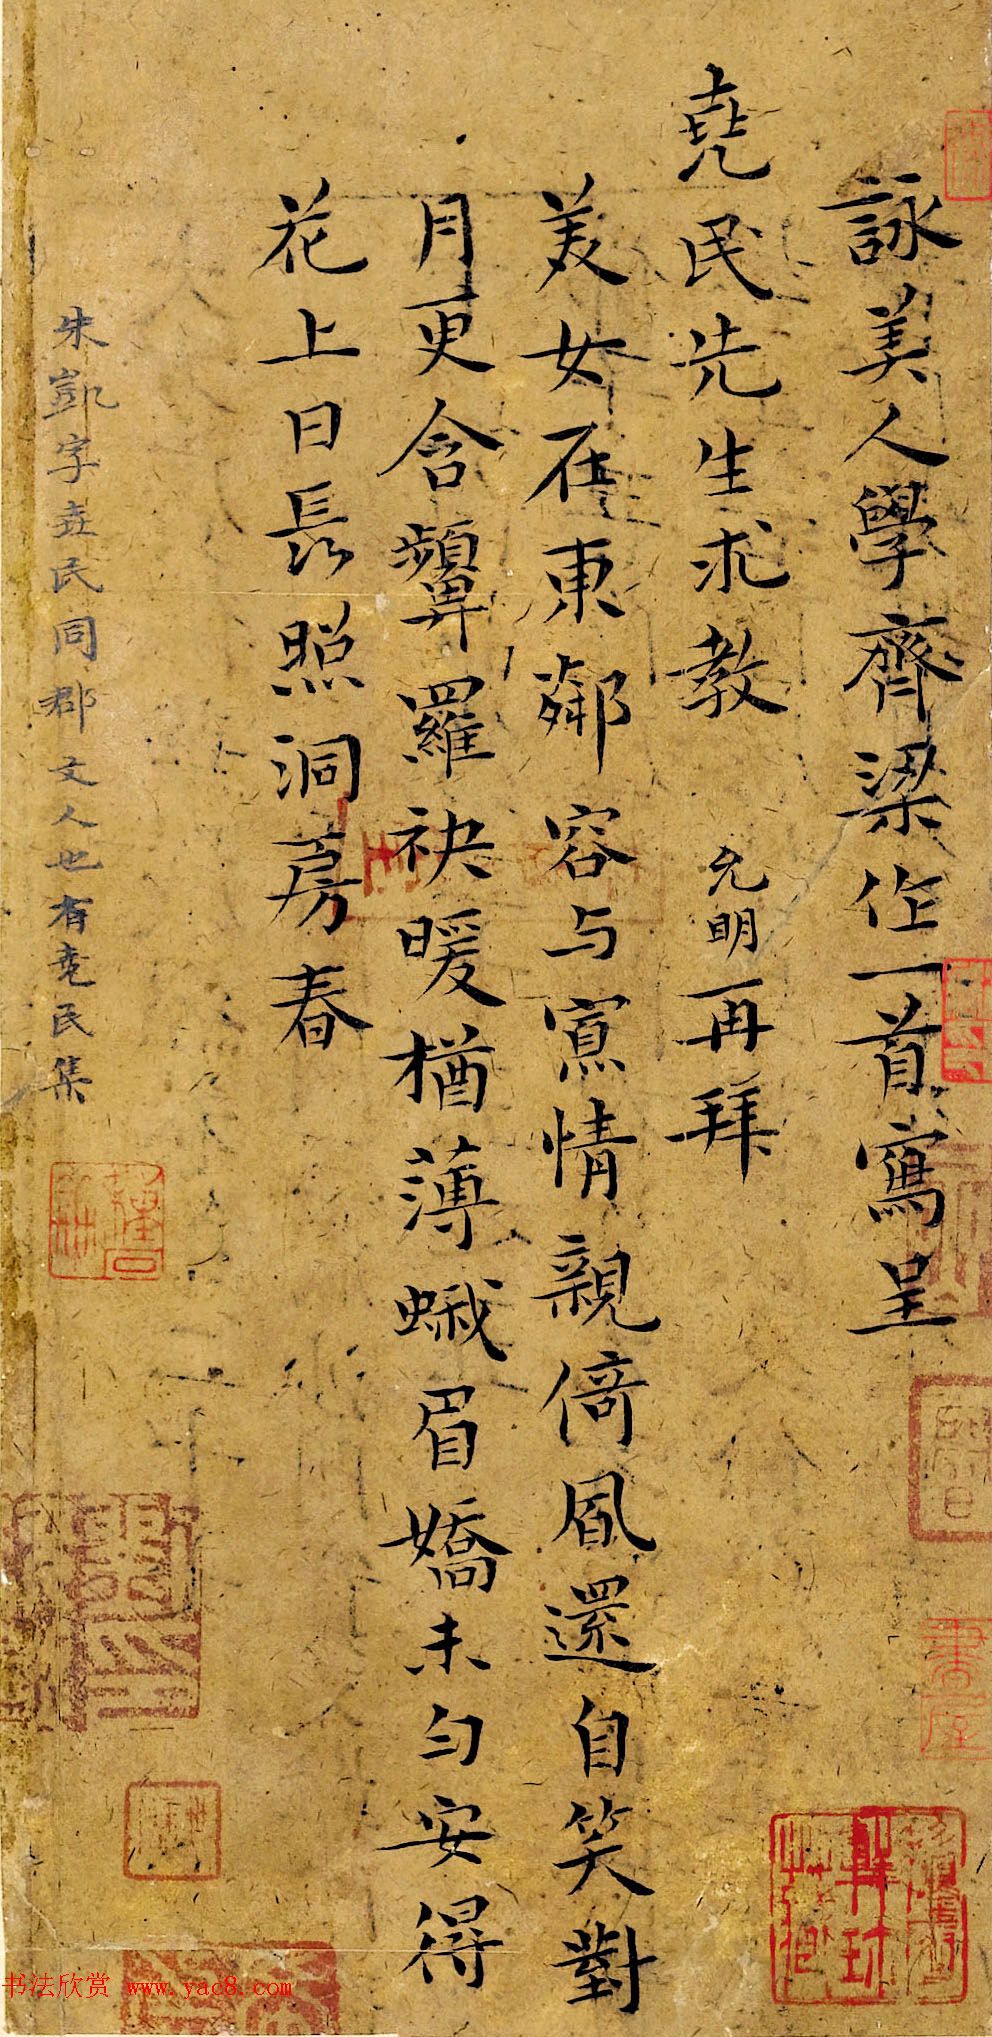 詠美人學齊梁作一首寫呈
堯民先生求教 允明再拜
美女在東鄰容与寘情親倚風還自笑對
月更含顰羅袂暖猶薄蛾眉嬌未勻安得
花上日長照洞房春
朱凱字堯民同郡文人也有堯民集
书法欣赏 www.yac8.com